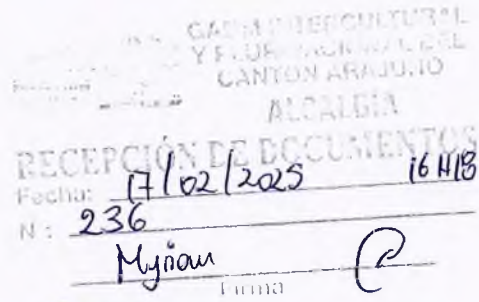 GADM INTERCULTURAL
Y PLURINACIONAL DEL
CANTON ARAJUNO
ALCALDIA
RECEPCIÓN DE DOCUMENTOS
Fecha: 17/02/2025 16H18
N: 236
Myrian
Firma